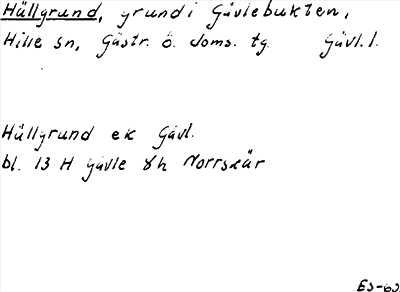 Hällgrund, grund i Gävlebukten,
Hille sn, Gästr. ö. doms. tg. Gävl. l.
Hällgrund ek Gävl.
bl. 13 H Gävle 8h Norrskär
ES-63